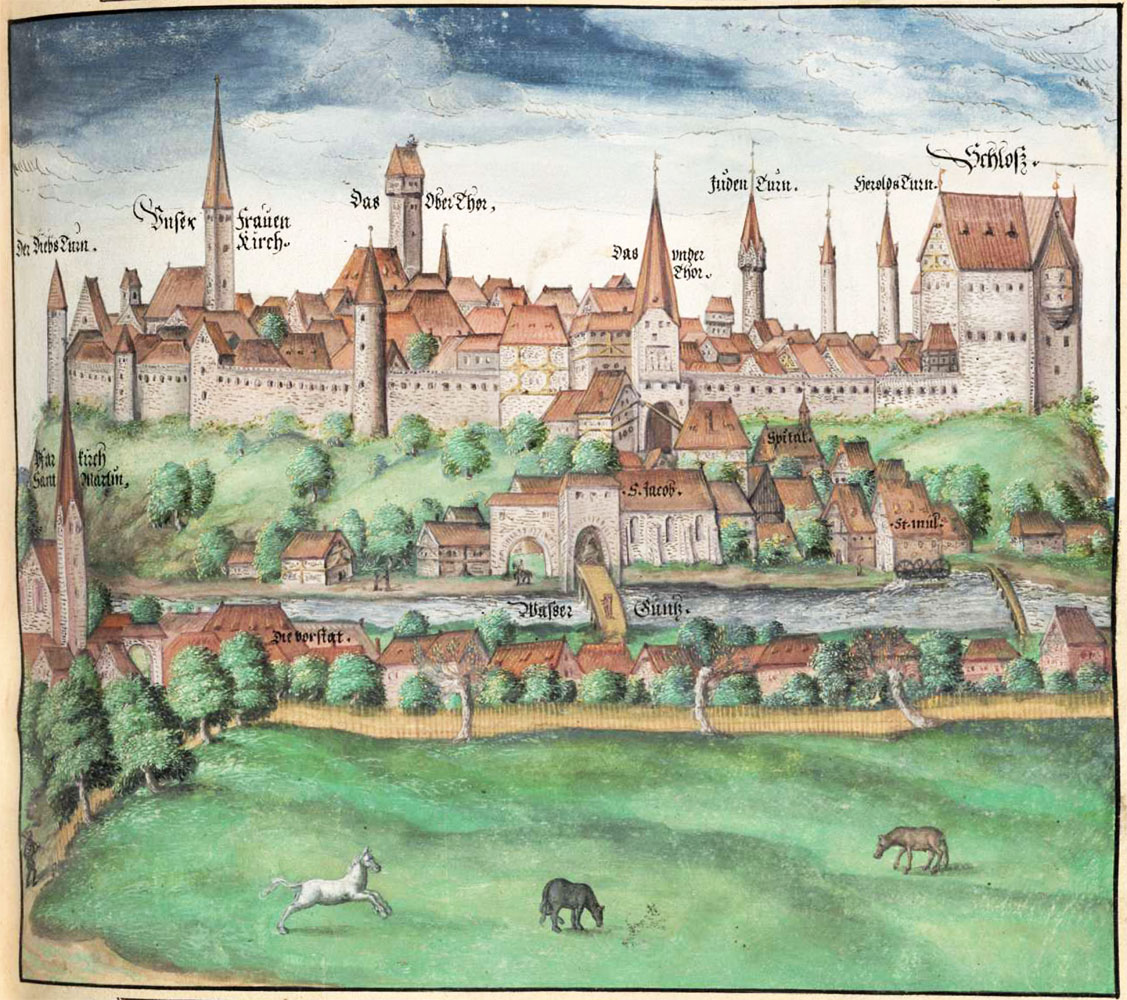 Schloß.
Juden Turn.
Herolds Turn.
Das Ober Thor,
Vnser Frauen
Kirch.
Der Diebs Turn.
Das vnder
Thor.
Spital.
Pfar kirch
Sant Martin,
S. Jacob.
St. mul.
Wasser Güntz.
Die vorstat.